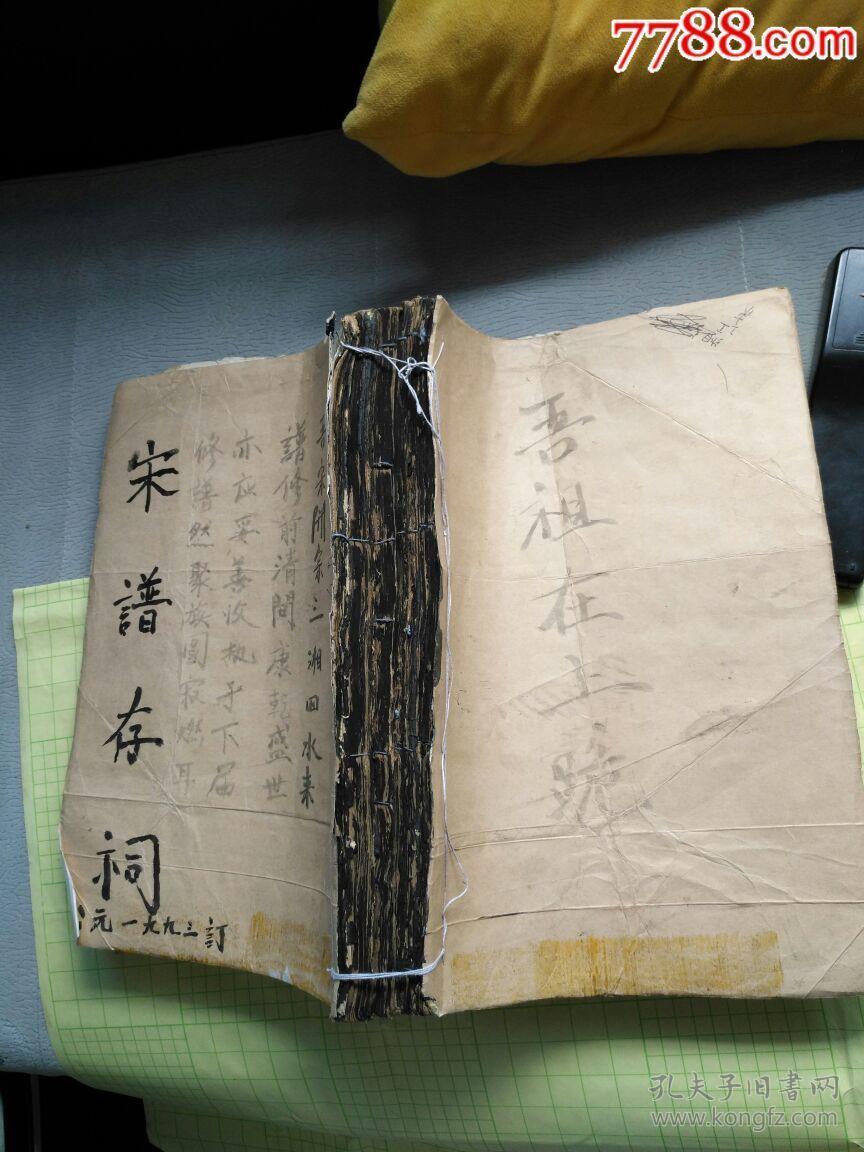 7788.com
吾祖在上
三湘四水來
譜修前清間康乾盛世
亦應妥善收執予下屆
修譜然聚族團寂燃耳
宋譜存祠
元一九九三訂
孔夫子旧書网
www.kongfz.com